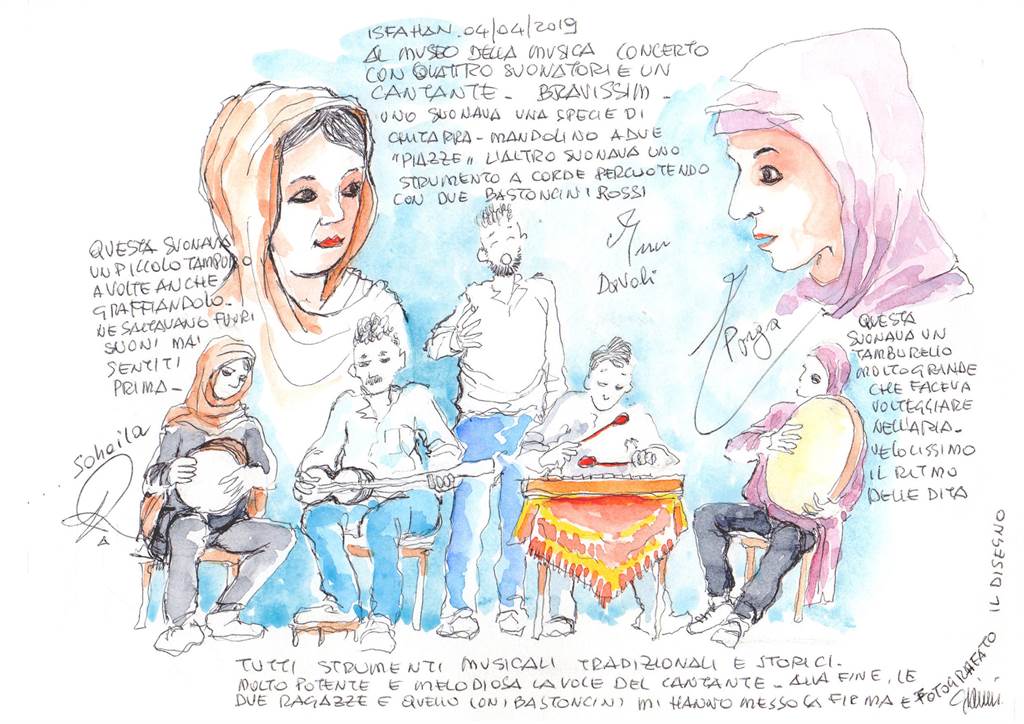 ISFAHAN. 04/04/2019
AL MUSEO DELLA MUSICA CONCERTO
CON QUATTRO SUONATORI E UN
CANTANTE - BRAVISSIMI -
UNO SUONAVA UNA SPECIE DI
CHITARRA - MANDOLINO A DUE
"PIAZZE" L'ALTRO SUONAVA UNO
STRUMENTO A CORDE PERCUOTENDO
CON DUE BASTONCINI ROSSI
QUESTA SUONAVA
UN PICCOLO TAMBURO
A VOLTE ANCHE
GRAFFIANDOLO.
NE SALTAVANO FUORI
SUONI MAI
SENTITI
PRIMA -
Sohaila
Davali
Porga
QUESTA
SUONAVA UN
TAMBURELLO
MOLTO GRANDE
CHE FACEVA
VOLTEGGIARE
NELL'ARIA -
VELOCISSIMO
IL RITMO
DELLE DITA
TUTTI STRUMENTI MUSICALI TRADIZIONALI E STORICI -
MOLTO POTENTE E MELODIOSA LA VOCE DEL CANTANTE - ALLA FINE, LE
DUE RAGAZZE E QUELLO CON I BASTONCINI MI HANNO MESSO LA FIRMA E FOTOGRAFATO
IL DISEGNO